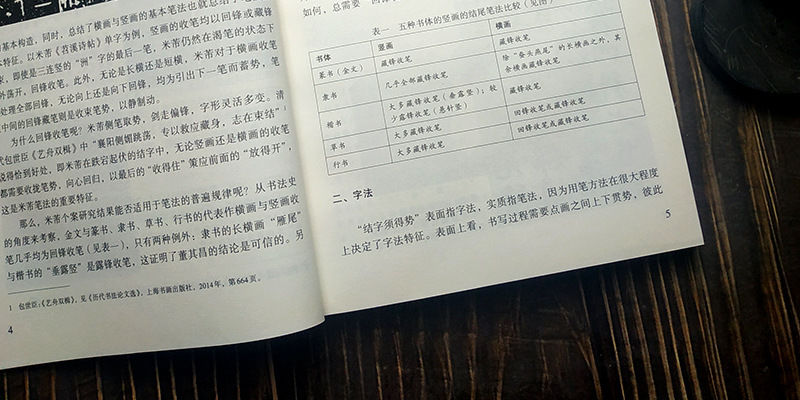 基本构造，同时，总结了横画与竖画的基本笔法也就总结了
特征。以米芾《苕溪诗帖》单字为例，竖画的收笔均以回锋或藏锋
即使是三连竖的“洲”字的最后一笔，米芾仍然在渴笔的状态下
外荡开，回锋收笔。此外，无论是长横还是短横，米芾对于横画收笔
处理全部回锋，无论向上还是向下回锋，均为引出下一笔而蓄势，笔
中间的回锋藏笔则是收束笔势，以静制动。
为什么回锋收笔呢？米芾侧笔取势，剑走偏锋，字形灵活多变。清
代包世臣《艺舟双楫》中“襄阳侧媚跳荡，专以救应藏身，志在束结”¹
说得恰到好处，即米芾在跌宕起伏的结字中，无论竖画还是横画的收笔
都需要收拢笔势，向心回归，以最后的“收得住”策应前面的“放得开”，
这是米芾笔法的重要特征。
那么，米芾个案研究结果能否适用于笔法的普遍规律呢？从书法史
的角度来考察，金文与篆书、隶书、草书、行书的代表作横画与竖画收
笔几乎均为回锋收笔（见表一），只有两种例外：隶书的长横画“雁尾”
与楷书的“垂露竖”是露锋收笔，这证明了董其昌的结论是可信的。另
1 包世臣：《艺舟双楫》，见《历代书法论文选》，上海书画出版社，2014年，第664页。
4
如何，总需要
表一 五种书体的竖画的结尾笔法比较（见图）
书体 竖画 横画
篆书（金文） 藏锋收笔 藏锋收笔
隶书 几乎全部藏锋收笔 除“蚕头燕尾”的长横画之外，其余横画藏锋收笔
楷书 大多藏锋收笔（垂露竖）；较少露锋收笔（悬针竖） 藏锋收笔
草书 大多藏锋收笔 回锋收笔或藏锋收笔
行书 大多藏锋收笔 回锋收笔或藏锋收笔
二、字法
“结字须得势”表面指字法，实质指笔法，因为用笔方法在很大程度
上决定了字法特征。表面上看，书写过程需要点画之间上下贯势，彼此
5